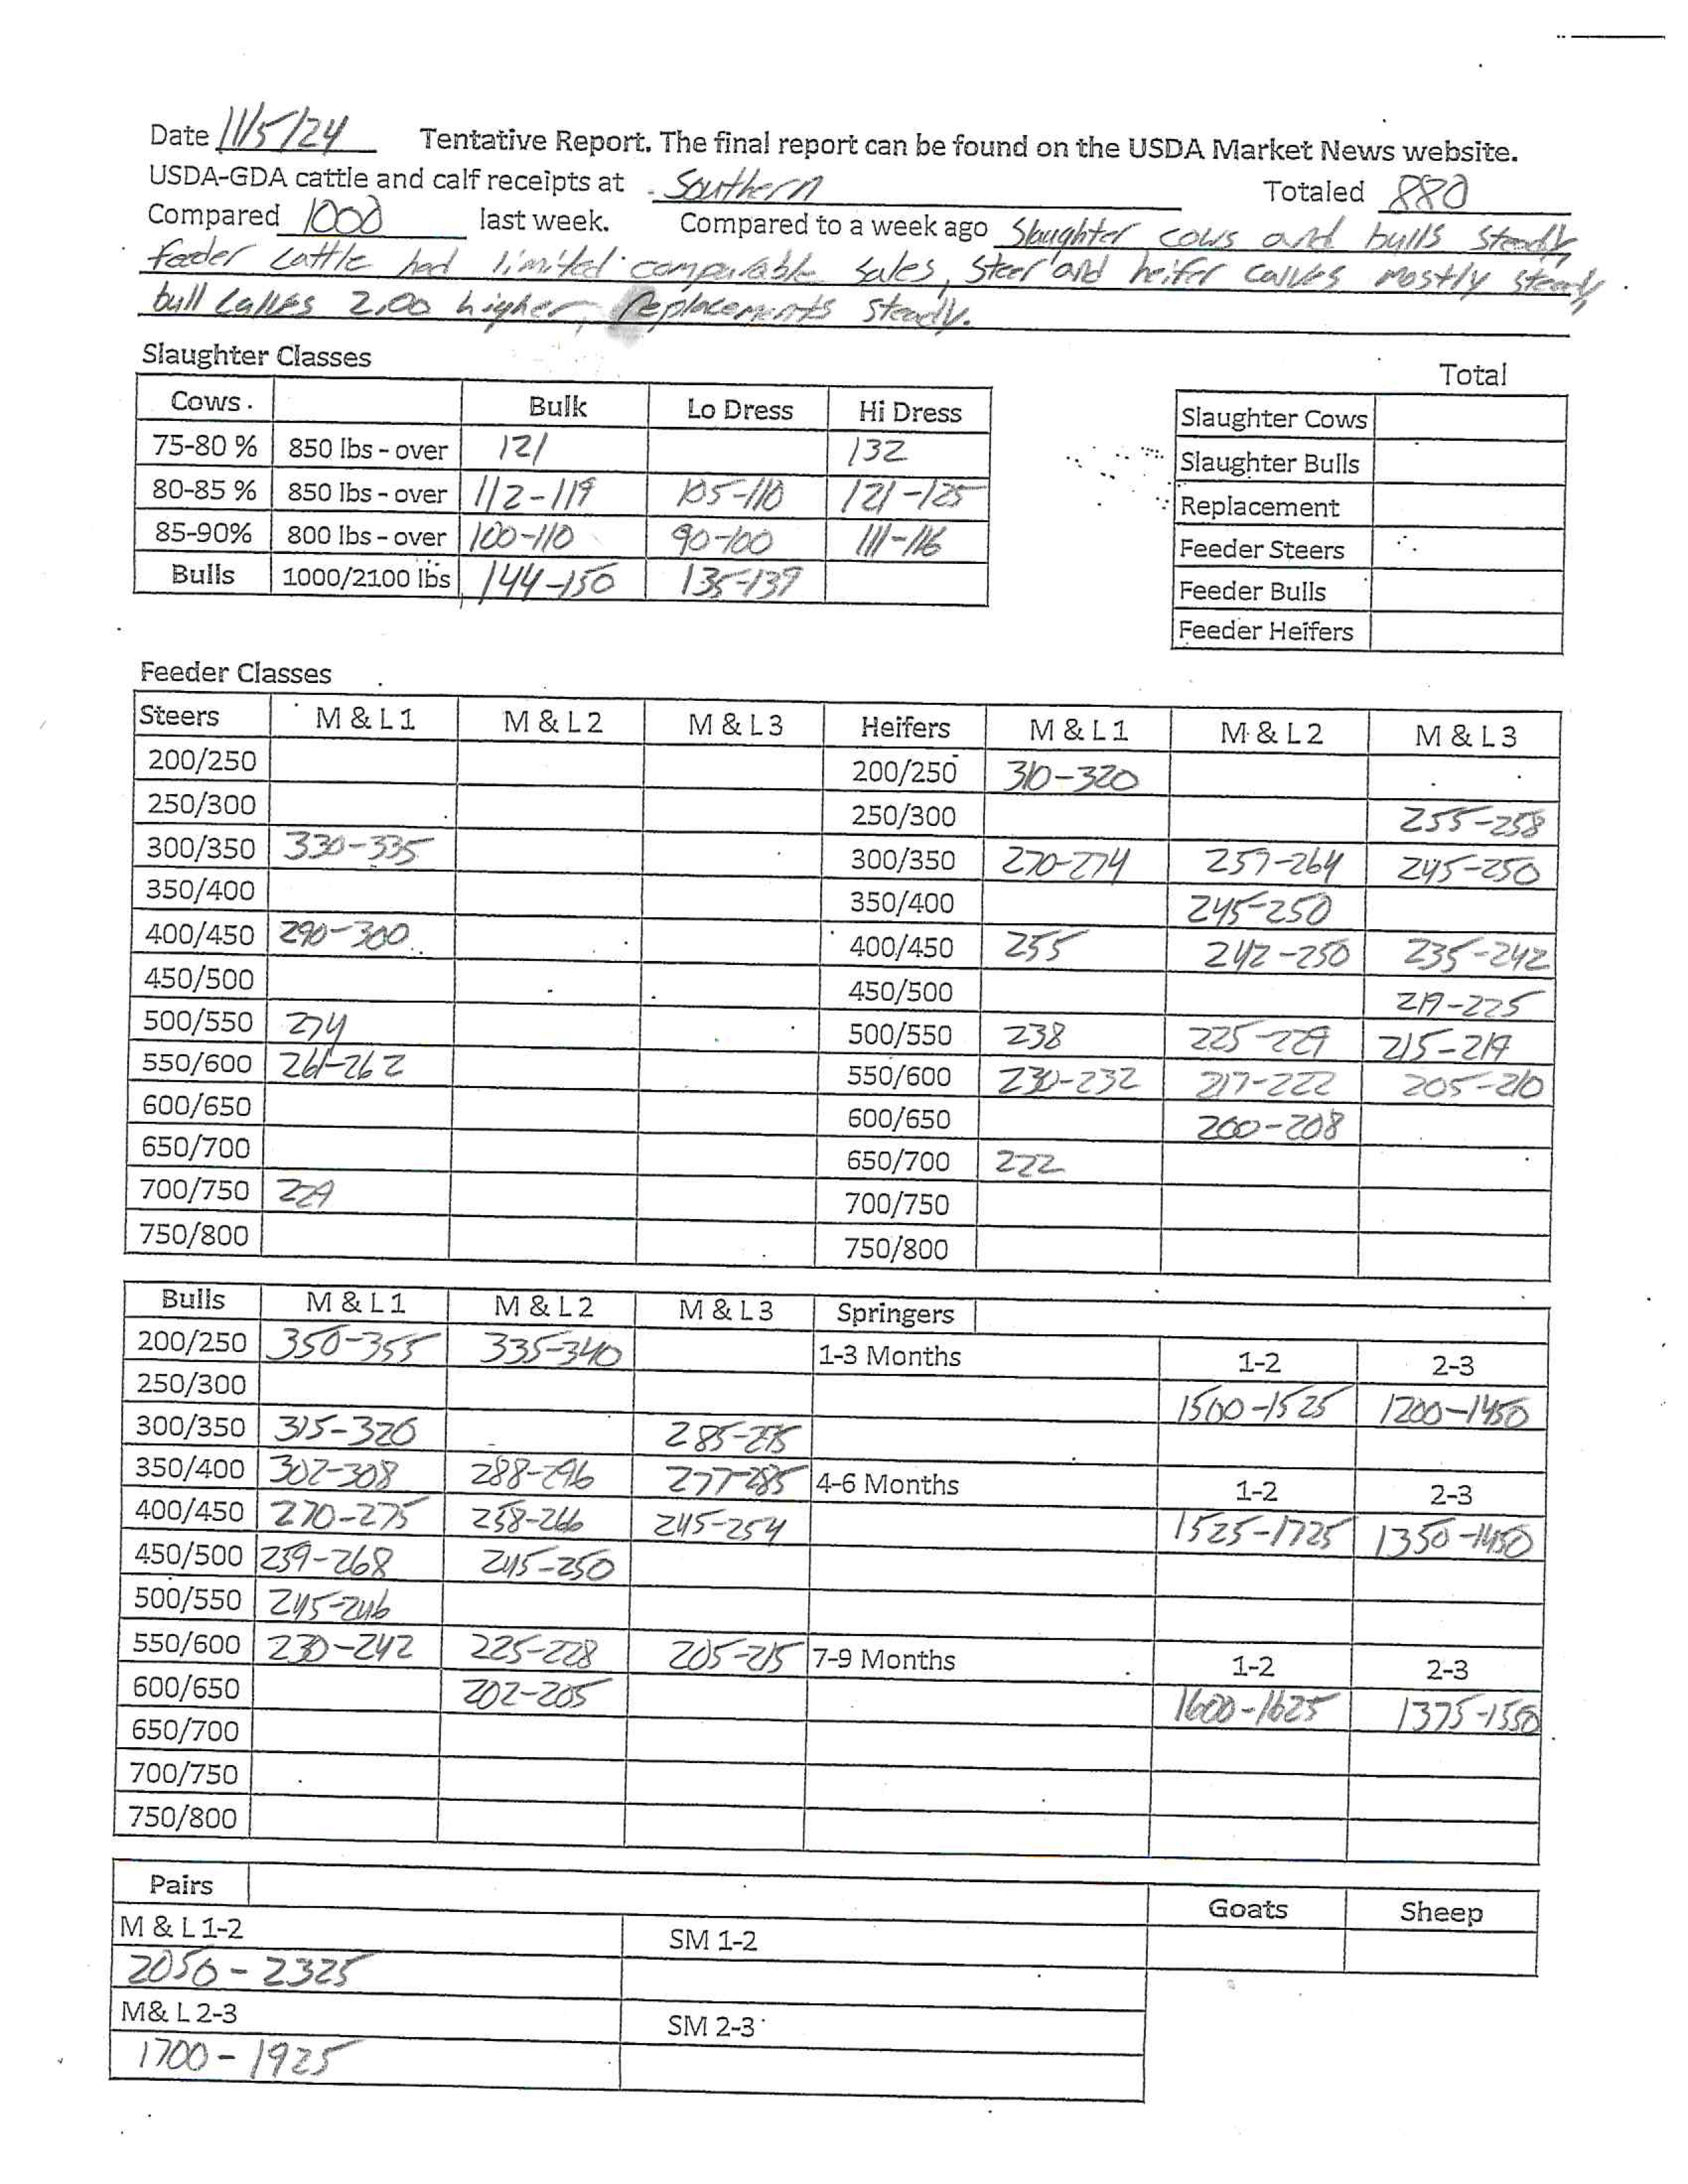 Date 11/5/24 Tentative Report. The final report can be found on the USDA Market News website.
USDA-GDA cattle and calf receipts at Southern Totaled 880
Compared 1000 last week. Compared to a week ago Slaughter cows and bulls steady,
feeder cattle had limited comparable sales, steer and heifer calves mostly steady,
bull calves 2.00 higher, Replacements steady.
Slaughter Classes
Total
Cows. Bulk Lo Dress Hi Dress
75-80 % 850 lbs - over 121 132
80-85 % 850 lbs - over 112-119 105-110 121-125
85-90% 800 lbs - over 100-110 90-100 111-116
Bulls 1000/2100 lbs 144-150 135-139
Slaughter Cows
Slaughter Bulls
Replacement
Feeder Steers
Feeder Bulls
Feeder Heifers
Feeder Classes
Steers M & L 1 M & L 2 M & L 3 Heifers M & L 1 M & L 2 M & L 3
200/250 200/250 310-320
250/300 250/300 255-258
300/350 330-335 300/350 270-274 257-264 245-250
350/400 350/400 245-250
400/450 290-300 400/450 255 242-250 235-242
450/500 450/500 219-225
500/550 274 500/550 238 225-229 215-219
550/600 261-262 550/600 230-232 217-222 205-210
600/650 600/650 200-208
650/700 650/700 222
700/750 229 700/750
750/800 750/800
Bulls M & L 1 M & L 2 M & L 3 Springers
200/250 350-355 335-340 1-3 Months 1-2 2-3
250/300 1500-1525 1200-1450
300/350 315-320 285-295
350/400 302-308 288-296 277-285 4-6 Months 1-2 2-3
400/450 270-275 258-266 245-254 1525-1725 1350-1450
450/500 259-268 245-250
500/550 245-246
550/600 230-242 225-228 205-215 7-9 Months 1-2 2-3
600/650 202-205 1600-1625 1375-1550
650/700
700/750
750/800
Pairs Goats Sheep
M & L 1-2 SM 1-2
2050 - 2325
M& L 2-3 SM 2-3
1700 - 1925